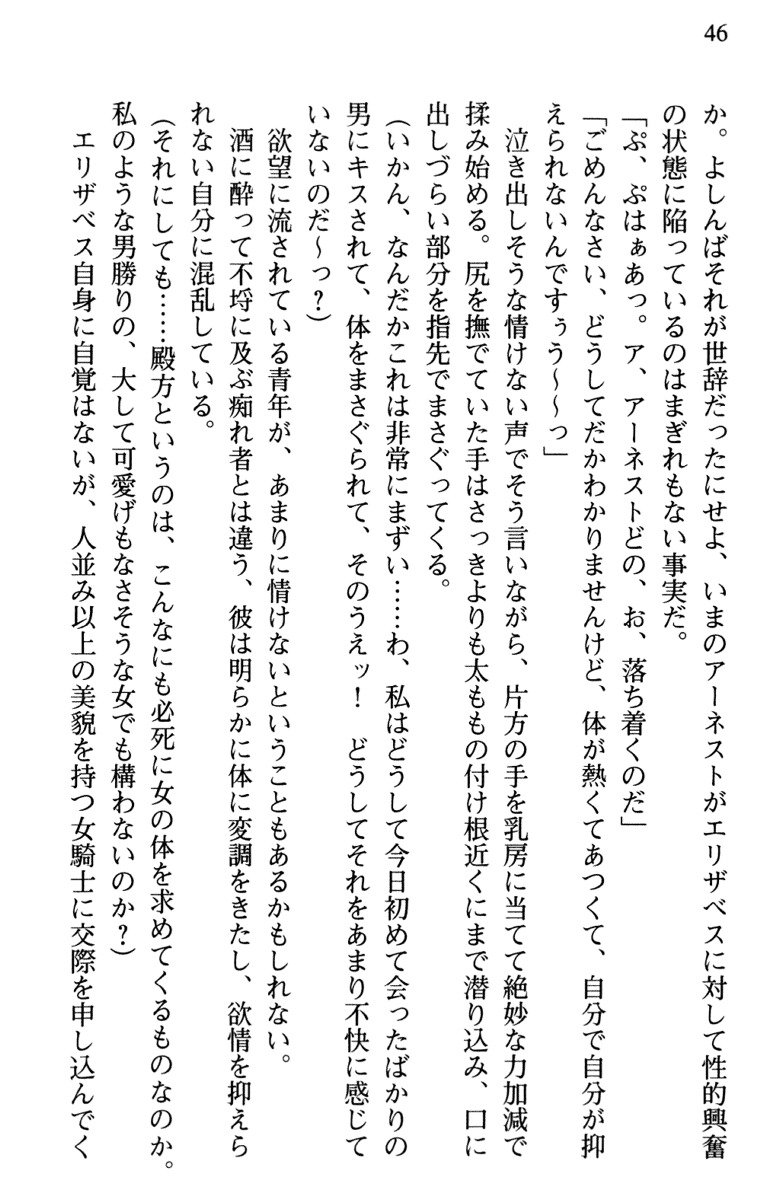 46
か。よしんばそれが世辞だったにせよ、いまのアーネストがエリザベスに対して性的興奮
の状態に陥っているのはまぎれもない事実だ。
「ぷ、ぷはぁあっ。ア、アーネストどの、お、落ち着くのだ」
「ごめんなさい、どうしてだかわかりませんけど、体が熱くてあつくて、自分で自分が抑
えられないんですぅう～～っ」
　泣き出しそうな情けない声でそう言いながら、片方の手を乳房に当てて絶妙な力加減で
揉み始める。尻を撫でていた手はさっきよりも太ももの付け根近くにまで潜り込み、口に
出しづらい部分を指先でまさぐってくる。
（いかん、なんだかこれは非常にまずい……わ、私はどうして今日初めて会ったばかりの
男にキスされて、体をまさぐられて、そのうえッ！　どうしてそれをあまり不快に感じて
いないのだ～っ？）
　欲望に流されている青年が、あまりに情けないということもあるかもしれない。
　酒に酔って不埒に及ぶ痴れ者とは違う、彼は明らかに体に変調をきたし、欲情を抑えら
れない自分に混乱している。
（それにしても……殿方というのは、こんなにも必死に女の体を求めてくるものなのか。
私のような男勝りの、大して可愛げもなさそうな女でも構わないのか？）
　エリザベス自身に自覚はないが、人並み以上の美貌を持つ女騎士に交際を申し込んでく